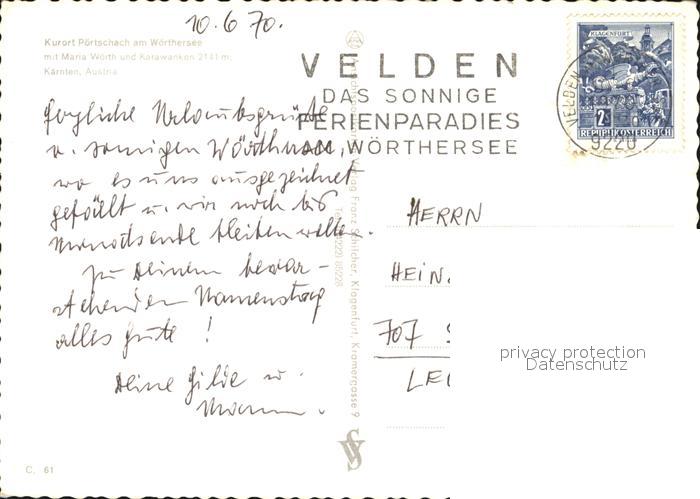 10.6.70.
Kurort Pörtschach am Wörthersee
mit Maria Wörth und Karawanken 2141 m,
Kärnten, Austria
VELDEN
DAS SONNIGE
FERIENPARADIES
AM WÖRTHERSEE
KLAGENFURT
2S
REPUBLIK ÖSTERREICH
VELDEN
9220
herzliche Urlaubsgrüße
v. sonnigen Wörthersee,
wo es uns ausgezeichnet
gefällt u. wir noch bis
Monatsende bleiben wollen.
Zu Deinem bevor-
stehenden Namenstag
alles Gute!
Deine Gilde u.
Verlag Franz Schilcher, Klagenfurt, Kramergasse 9
HERRN
HEIN.
707
LEI
privacy protection
Datenschutz
C. 61